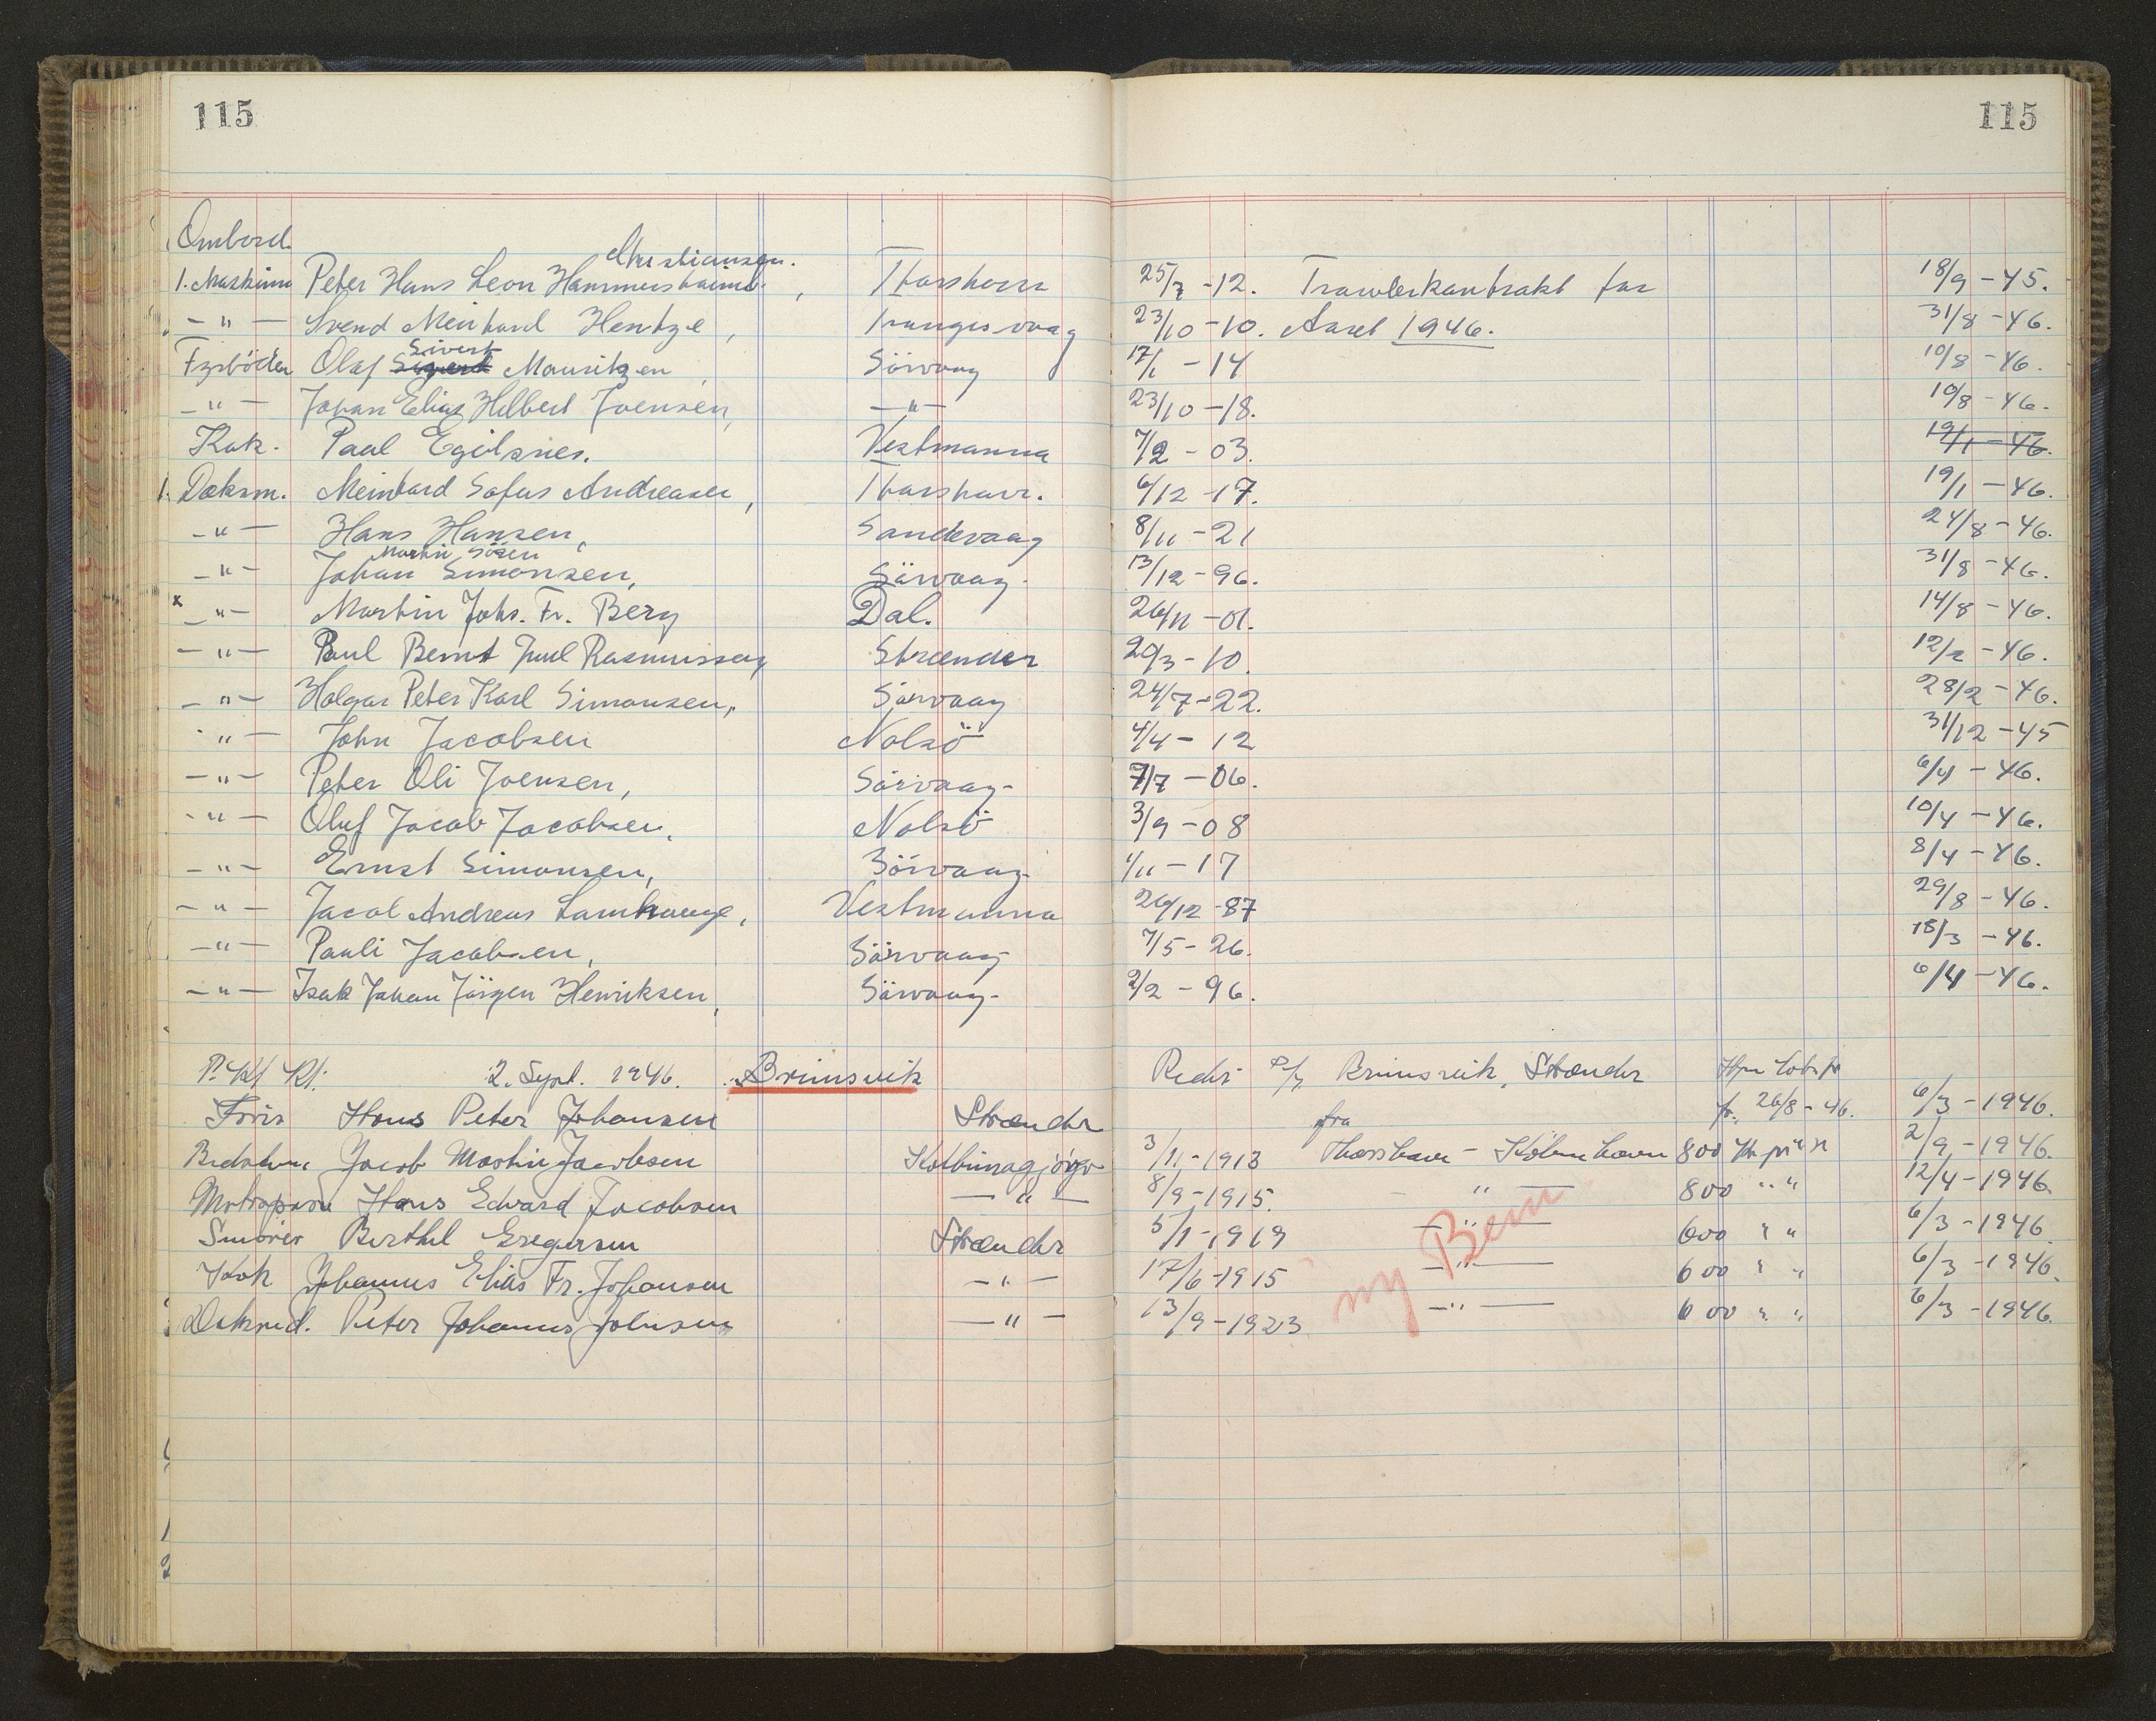 115 115
Ombord.
Christiansen.
1. Maskinm Peter Hans Leon Hammershaimb, Thorshavn 25/7 -12. Trawlerkontrakt for 18/9 -45.
-"- Svend Meinhard Hentze, Trangisvaag 23/10 -10. Aaret 1946. 31/8 -46.
Sivert
Fyrböder Olaf Sigurd Mouritzen, Sörvaag 17/1 -14 10/8 -46.
-"- Johan Elias Hilbert Joensen, -"- 23/10 -18. 10/8 -46.
Kok. Paul Egilsnes. Vestmanna 7/2 -03. 19/1 -46.
1. Deksm. Meinhard Sofus Andreasen, Thorshavn. 6/12 -17. 19/1 -46.
-"- Hans Hansen, Sandevaag 8/11 -21 24/8 -46.
Martin Sören
-"- Johan Simonsen, Sörvaag. 13/12 -96. 31/8 -46.
x -"- Martin Johs. Fr. Berg Dal. 26/11 -01. 14/8 -46.
-"- Paul Bernt Juul Rasmussen, Strænder 20/3 -10. 12/2 -46.
-"- Holgar Peter Karl Simonsen, Sörvaag 24/7 -22. 28/2 -46.
-"- John Jacobsen Nolsö 4/4 - 12 31/12 -45
-"- Peter Oli Joensen, Sörvaag- 7/7 -06. 6/4 -46.
-"- Oluf Jacob Jacobsen, Nolsö 3/9 -08 10/4 -46.
-"- Ernst Simonsen, Sörvaag- 1/11 -17 8/4 -46.
-"- Jacob Andreas Lamhauge, Vestmanna 26/12 -87 29/8 -46.
-"- Pauli Jacobsen, Sörvaag 7/5 -26. 18/3 -46.
-"- Isak Johan Jörgen Henriksen, Sörvaag- 2/2 -96. 6/4 -46.
2. Sept. 1946. "Brimsvik Rederi Brimsvik, Strænder
Förer Hans Peter Johansen Strænder fra fr. 26/8 -46. 6/3 -1946.
Jacob Martin Jacobsen Kolbanargjógv 3/11 -1913 Thorshavn - Köbenhavn 800 Kr 2/9 -1946.
Motorpasser Hans Edvard Jacobsen -"- 8/9 -1915. -"- 800 " " 12/4 -1946.
Smörer Berthel Gregersen Strænder 5/1 -1919 -"- 600 " " 6/3 -1946
Kok Johannes Elias Fr. Johansen -"- 17/6 -1915 -"- 600 " " 6/3 -1946.
Deksmd. Peter Johannes Johnsen -"- 13/9 -1923 -"- 600 " " 6/3 -1946.
ny Bem